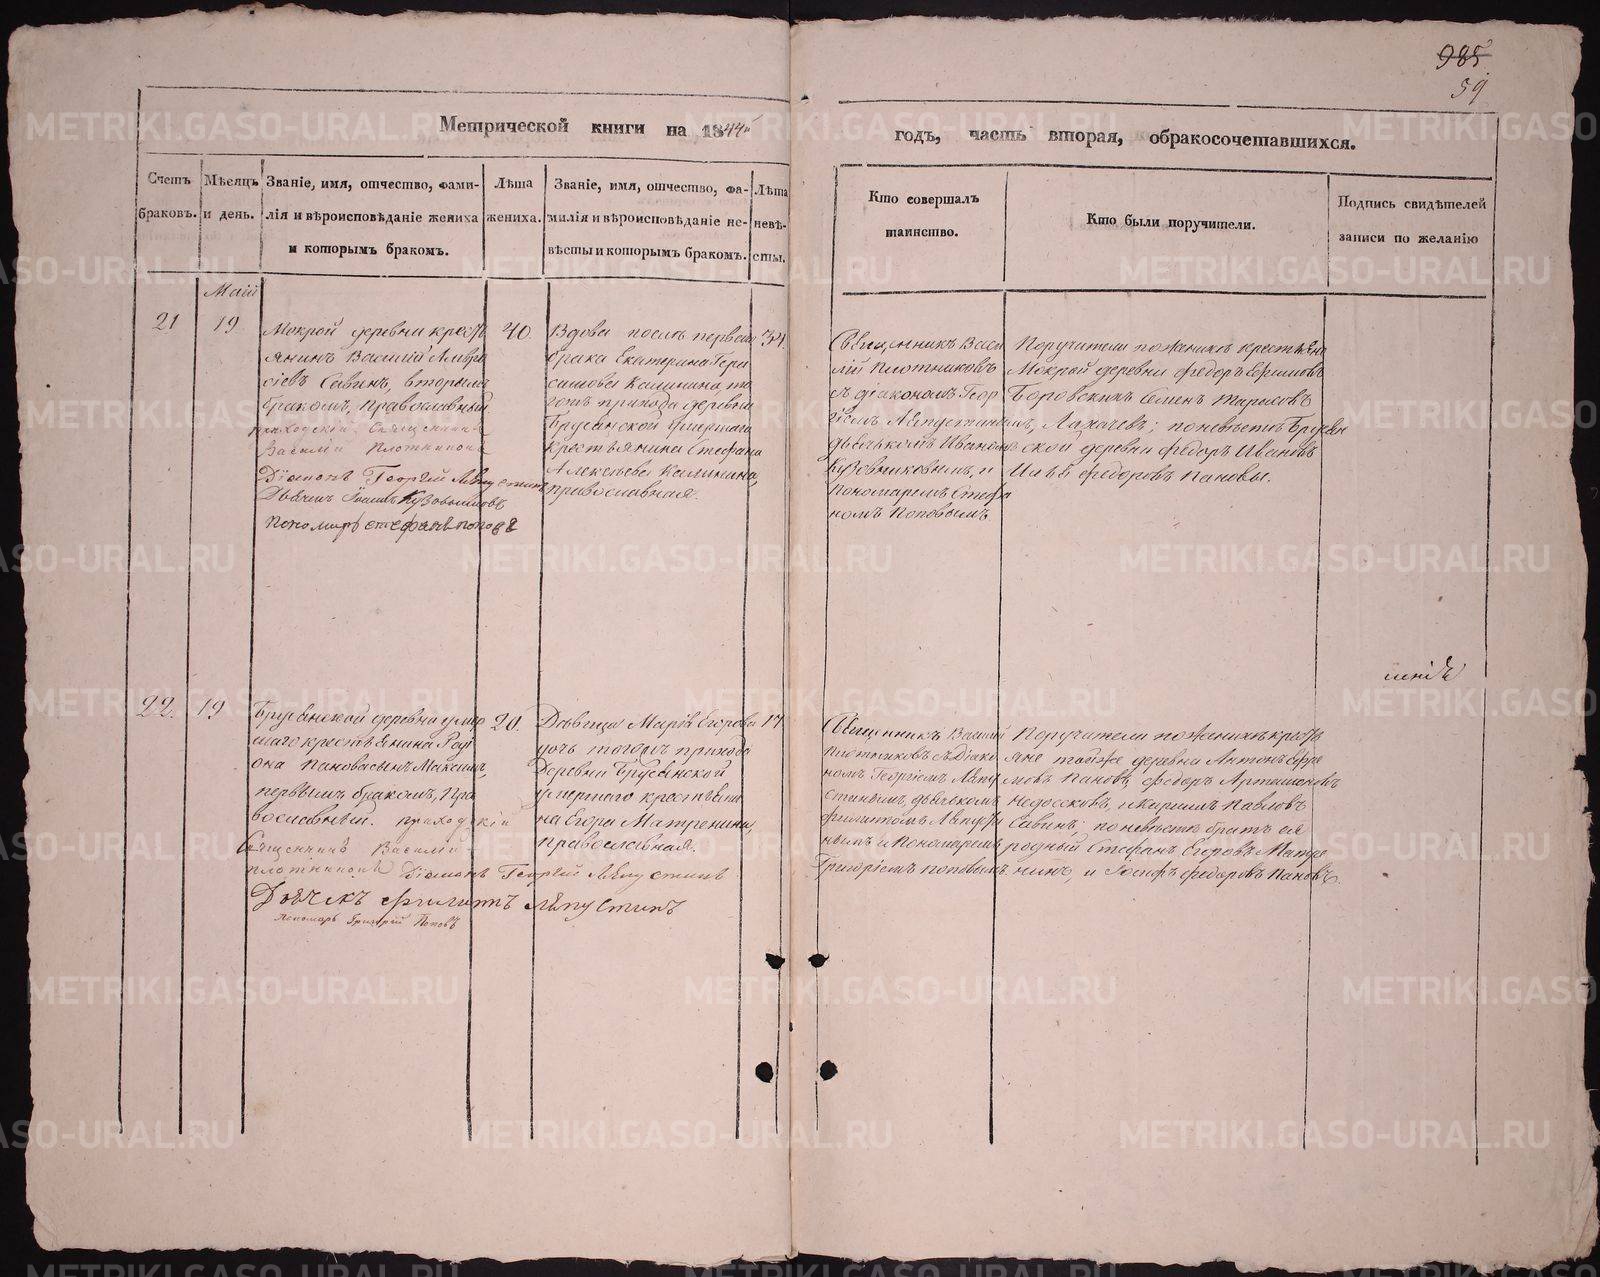 985
59
Метрической книги на 1844й
годъ, часть вторая, обракосочетавшихся.
Счетъ браковъ.
Мѣсяцъ и день.
Званіе, имя, отчество, фами-
лія и вѣроисповѣданіе жениха
и которымъ бракомъ.
Лѣта
жениха.
Званіе, имя, отчество, фа-
милія и вѣроисповѣданіе не-
вѣсты и которымъ бракомъ.
Лѣта
невѣ-
сты.
Кто совершалъ
таинство.
Кто были поручители.
Подпись свидѣтелей
записи по желанію
Маій
21
19
Мокрой деревни кресть
янинъ Василій
Савинъ, вторымъ
бракомъ, православный
приходскій Священникъ
Василій Плотниковъ
Діаконъ Георгій Ляпустинъ
Дьячекъ Іоаннъ Кузовниковъ
пономарь стефанъ поповъ
40.
Вдова послѣ перваго
брака Екатерина Гера
симова Калинина, то
гожъ прихода деревни
Брусянской умершаго
крестьянина Стефана
Алексѣева Калинина,
православная.
34.
Священникъ Васи
лій Плотниковъ
съ діакономъ Геор
гіемъ Ляпустинымъ,
дьячькомъ Иваномъ
Кузовниковымъ, и
Пономаремъ Стефа
номъ Поповымъ
Поручители по женихѣ крестьяна
Мокрой деревни Федоръ Ефимовъ
Боровскихъ Семенъ
Лахачевъ; по невѣстѣ Брусян
ской деревни Федоръ Ивановъ
Илья Федоровъ Пановы.
22.
19
Брусянской деревни умер
шаго крестьянина Род
іона Панова сынъ Максимъ,
первымъ бракомъ, Пра
вославный. приходскій
Священникъ Василій
плотниковъ Діаконъ Георгій Ляпустинъ
Дьячекъ Филиппъ Ляпустинъ
Пономарь Григорій Поповъ
20.
Дѣвица Марія Егорова
дочь тогожъ прихода
Деревни Брусянской
умершаго крестьяни
на Егора Матренина,
православная.
17
Священникъ Василій
Плотниковъ съ діако
номъ Георгіемъ Ляпу
стинымъ, дьячькомъ
Филиппомъ Ляпусти
нымъ и Пономаремъ
Григоріемъ поповымъ
Поручители по женихѣ кресть
яне тойже деревни Антонъ Ефре
мовъ Пановъ, Федоръ Артамоновъ
Недосѣковъ, и Кирилъ Павловъ
Савинъ; по невѣстѣ братъ ея
родный Стефанъ Егоровъ Матре
нинъ, и Іосифъ Федоровъ Пановъ.
METRIKI.GASO-URAL.RU